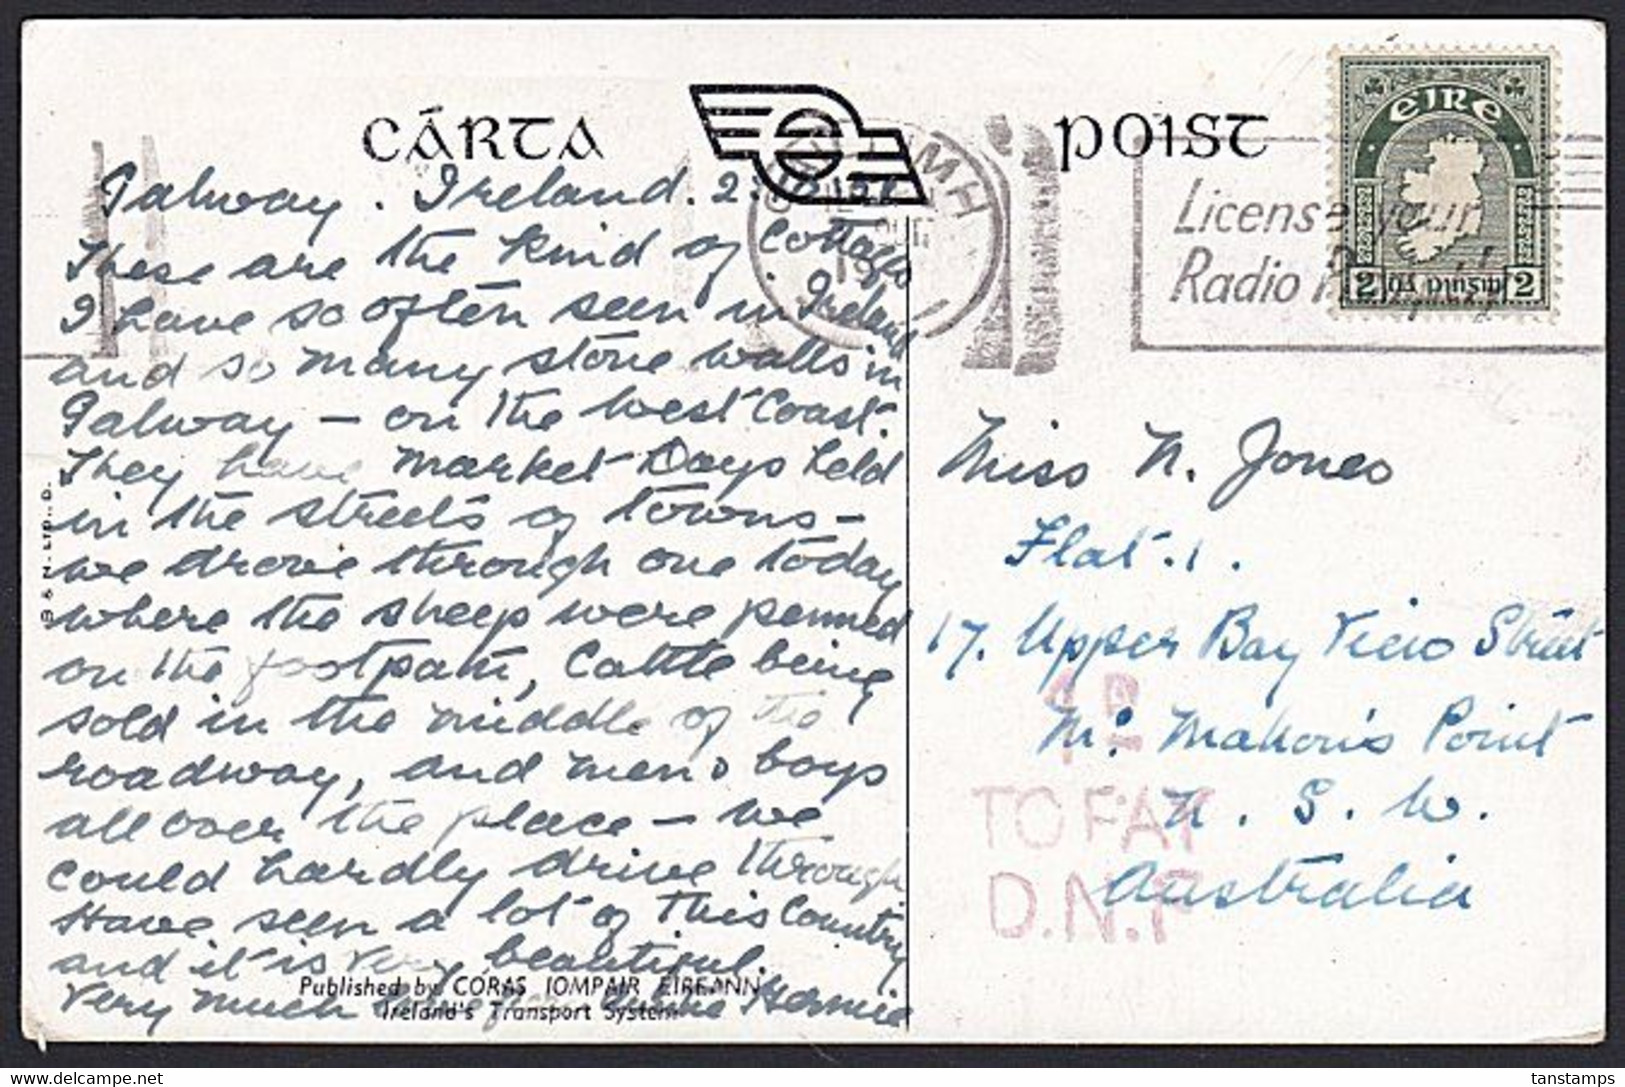 CÁRTA POIST
Galway. Ireland. 2.
These are the kind of Cottages
I have so often seen in Ireland
and so many stone walls in
Galway — on the West Coast.
They have Market Days held
in the streets of towns —
we drove through one today
where the sheep were penned
on the footpath, Cattle being
sold in the middle of the
roadway, and men & boys
all over the place — we
could hardly drive through.
Have seen a lot of this Country
and it is very beautiful.
Very much
Published by CÓRAS IOMPAIR ÉIREANN
Ireland's Transport System
License your
Radio
EIRE
2 pingin 2
Miss N. Jones
Flat. 1.
17. Upper Bay View Street
Mc. Mahon's Point
N. S. W.
Australia
TO PAY
D.N.F
tanstamps